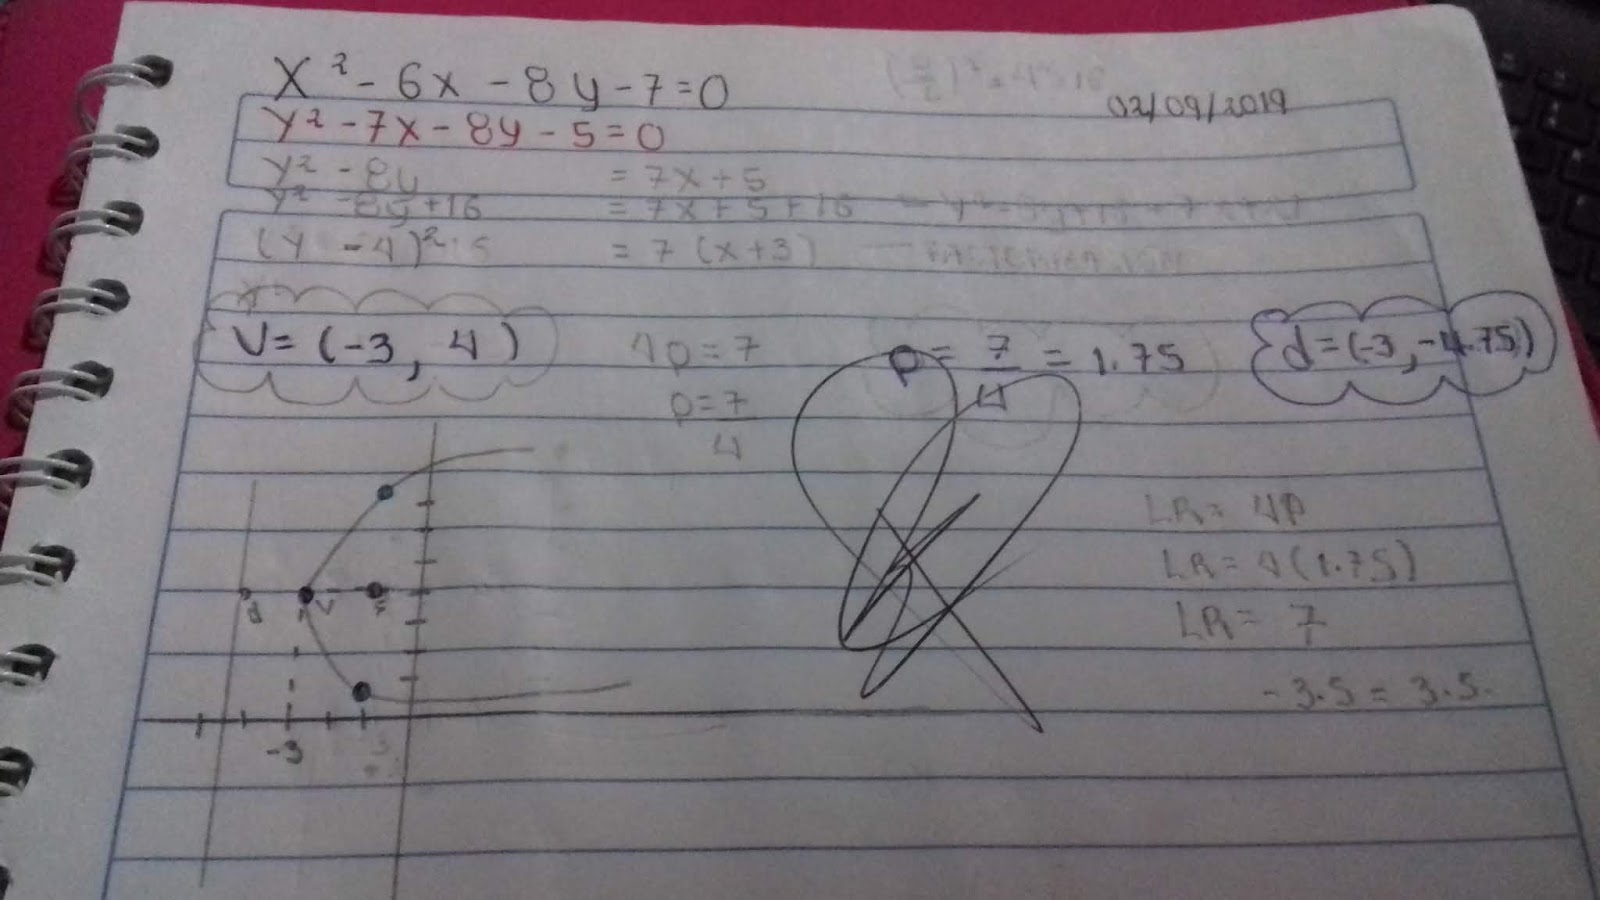 x² - 6x - 8y - 7 = 0
02/09/2019
y² - 7x - 8y - 5 = 0
y² - 8y = 7x + 5
y² - 8y + 16 = 7x + 5 + 16
(y - 4)² = 7 (x + 3)
V = (-3, 4)
4p = 7
p = 7/4
p = 7/4 = 1.75
d = (-3, -4.75)
LR = 4p
LR = 4(1.75)
LR = 7
-3.5 = 3.5
d V F
-3